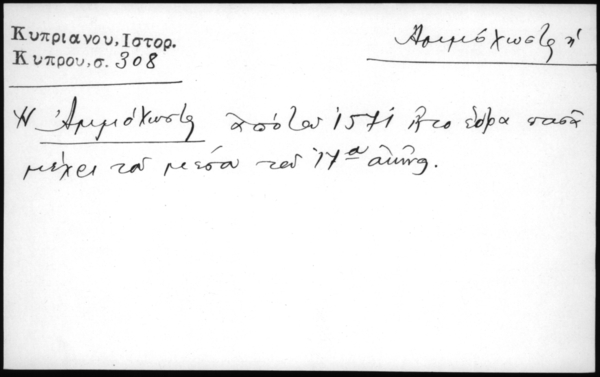 Κυπριανου, Ιστορ.
Κυπρου, σ. 308
Αμμόχωστος ἡ
Ἡ Ἀμμόχωστος ἀπό τοῦ 1571 ἦτο ἕδρα πασᾶ
μέχρι τοῦ μέσα τοῦ 17ου αἰῶνος.